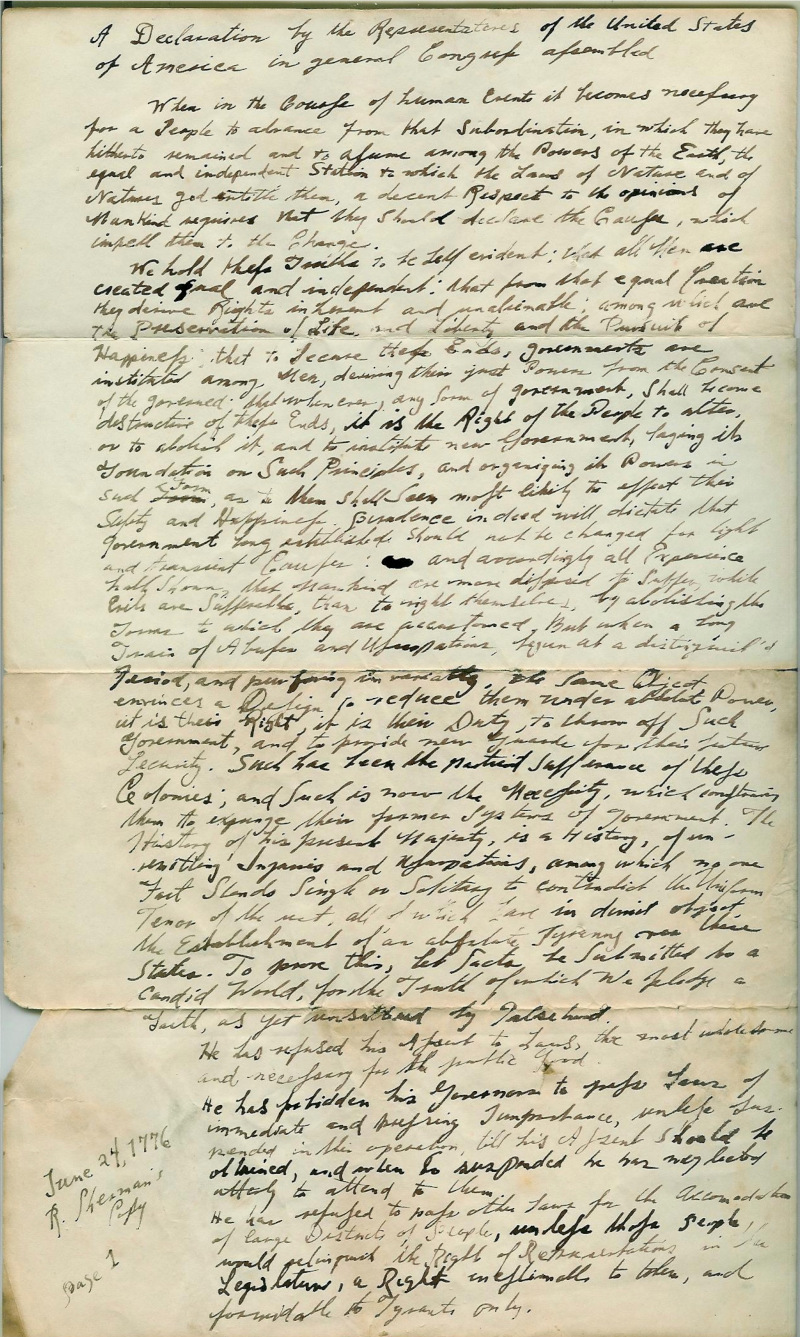 A Declaration by the Representatives of the United States
of America in general Congreſs aſsembled
When in the Courſe of human Events it becomes neceſsary
for a People to advance from that Subordination, in which they have
hitherto remained and to aſsume among the Powers of the Earth, the
equal and independent Station to which the Laws of Nature and of
Natures god entitle them, a decent Respect to the opinions of
Mankind requires that they Should declare the Cauſes, which
impell them to the Change.
We hold theſe Truths to be Self evident; that all Men are
created equal and independent; that from that equal Creation
they derive Rights inherent and unalienable; among which are
the Preservation of Life, and Liberty and the Pursuit of
Happineſs; that to Secure theſe Ends, governments are
instituted among Men, deriving their just Powers from the Consent
of the governed; that whenever, any form of government, Shall become
destructive of theſe Ends, it is the Right of the People to alter,
or to abolish it, and to institute new Government, laying its
Foundation on Such Principles, and organizing its Powers in
such Form, as to them Shall Seem moſt likely to effect their
Safety and Happineſs. prudence indeed will dictate that
Government long established should not be changed for light
and transient Cauſes: and accordingly all Experience
hath Shown, that Mankind are more disposed to Suffer, while
Evils are Sufferable, than to right themselves, by abolishing the
Forms to which they are accustomed. But when a long
Train of Abuſes and Uſurpations, begun at a distinguish'd
Period, and purſuing invariably, the Same Object
envinces a Deſign to reduce them under absolute Power,
it is their Right, it is their Duty, to throw off Such
Government, and to provide new Guards for their future
Security. Such has been the patient Sufferance of theſe
Colonies; and Such is now the Neceſsity, which constrains
them to expunge their former Systems of Government. The
History of his present Majesty, is a History, of un-
remitting Injuries and Uſurpations, among which no one
Fact Stands Single or Solitary to contradict the Uniform
Tenor of the rest, all of which have in direct object
the Establishment of an abſolute Tyranny over these
States. To prove this, let Facts be Submitted to a
Candid World, for the Truth of which We pledge a
Faith, as yet unsullied by Falsehood.
He has refused his Aſsent to Laws, the most wholesome
and neceſsary for the public Good.
He has forbidden his Governors to paſs Laws of
immediate and preſsing Importance, unleſs Sus-
pended in their operation, till his Aſsent Should be
obtained, and when So suspended he has neglected
utterly to attend to them.
He has refused to paſs other Laws for the Accomodation
of large Districts of People, unleſs thoſe People
would relinquish the Right of Representation in the
Legislature, a Right inestimable to them, and
formidable to Tyrants only.
June 24, 1776
R. Sherman's
Copy
page 1